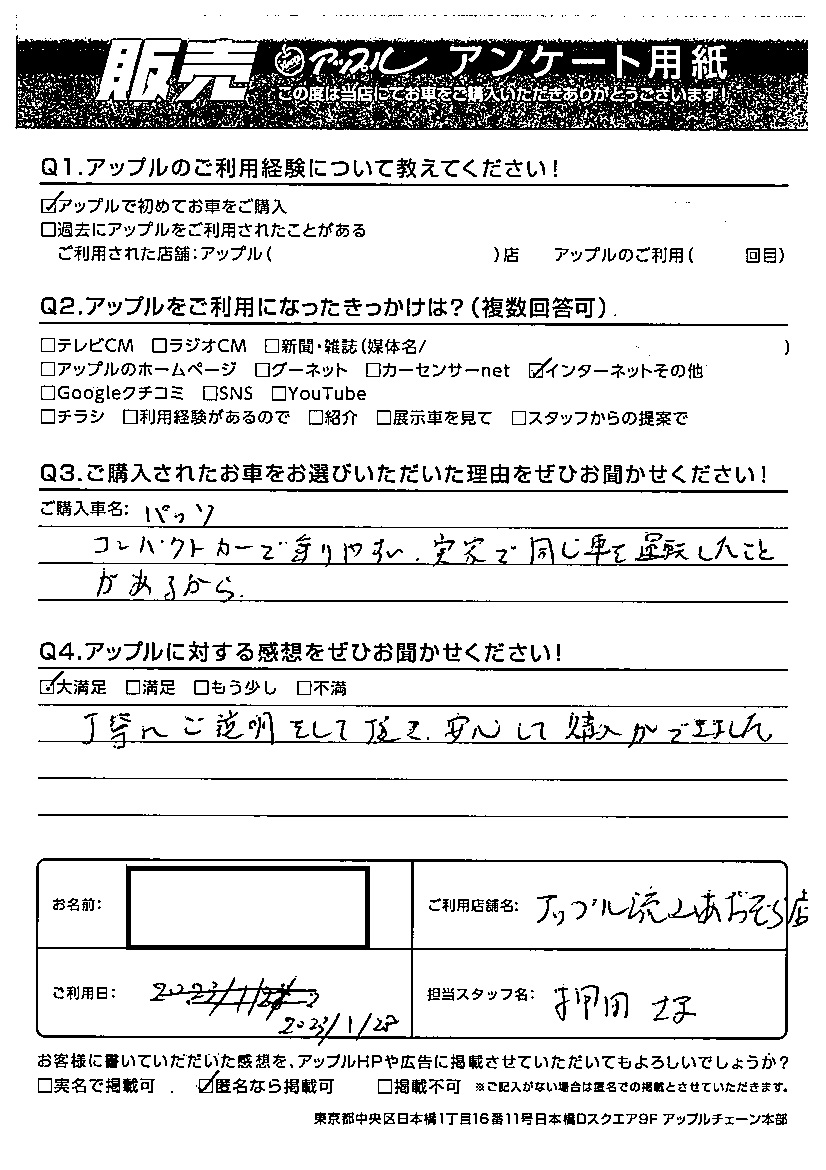 販売 アップル アンケート用紙
この度は当店にてお車をご購入いただきありがとうございます!
Q1.アップルのご利用経験について教えてください!
☑アップルで初めてお車をご購入
□過去にアップルをご利用されたことがある
ご利用された店舗:アップル( )店 アップルのご利用( 回目)
Q2.アップルをご利用になったきっかけは?(複数回答可)
□テレビCM □ラジオCM □新聞・雑誌(媒体名/ )
□アップルのホームページ □グーネット □カーセンサーnet ☑インターネットその他
□Googleクチコミ □SNS □YouTube
□チラシ □利用経験があるので □紹介 □展示車を見て □スタッフからの提案で
Q3.ご購入されたお車をお選びいただいた理由をぜひお聞かせください!
ご購入車名: パッソ
コンパクトカーで乗りやすい。実家で同じ車を運転したこと
があるから。
Q4.アップルに対する感想をぜひお聞かせください!
☑大満足 □満足 □もう少し □不満
丁寧にご説明をして頂き、安心して購入ができました
お名前:
ご利用店舗名: アップル流山あおぞら店
ご利用日:
2023/1/28
担当スタッフ名: 押田さま
お客様に書いていただいた感想を、アップルHPや広告に掲載させていただいてもよろしいでしょうか?
□実名で掲載可 ☑匿名なら掲載可 □掲載不可 ※ご記入がない場合は匿名での掲載とさせていただきます。
東京都中央区日本橋1丁目16番11号日本橋Dスクエア9F アップルチェーン本部